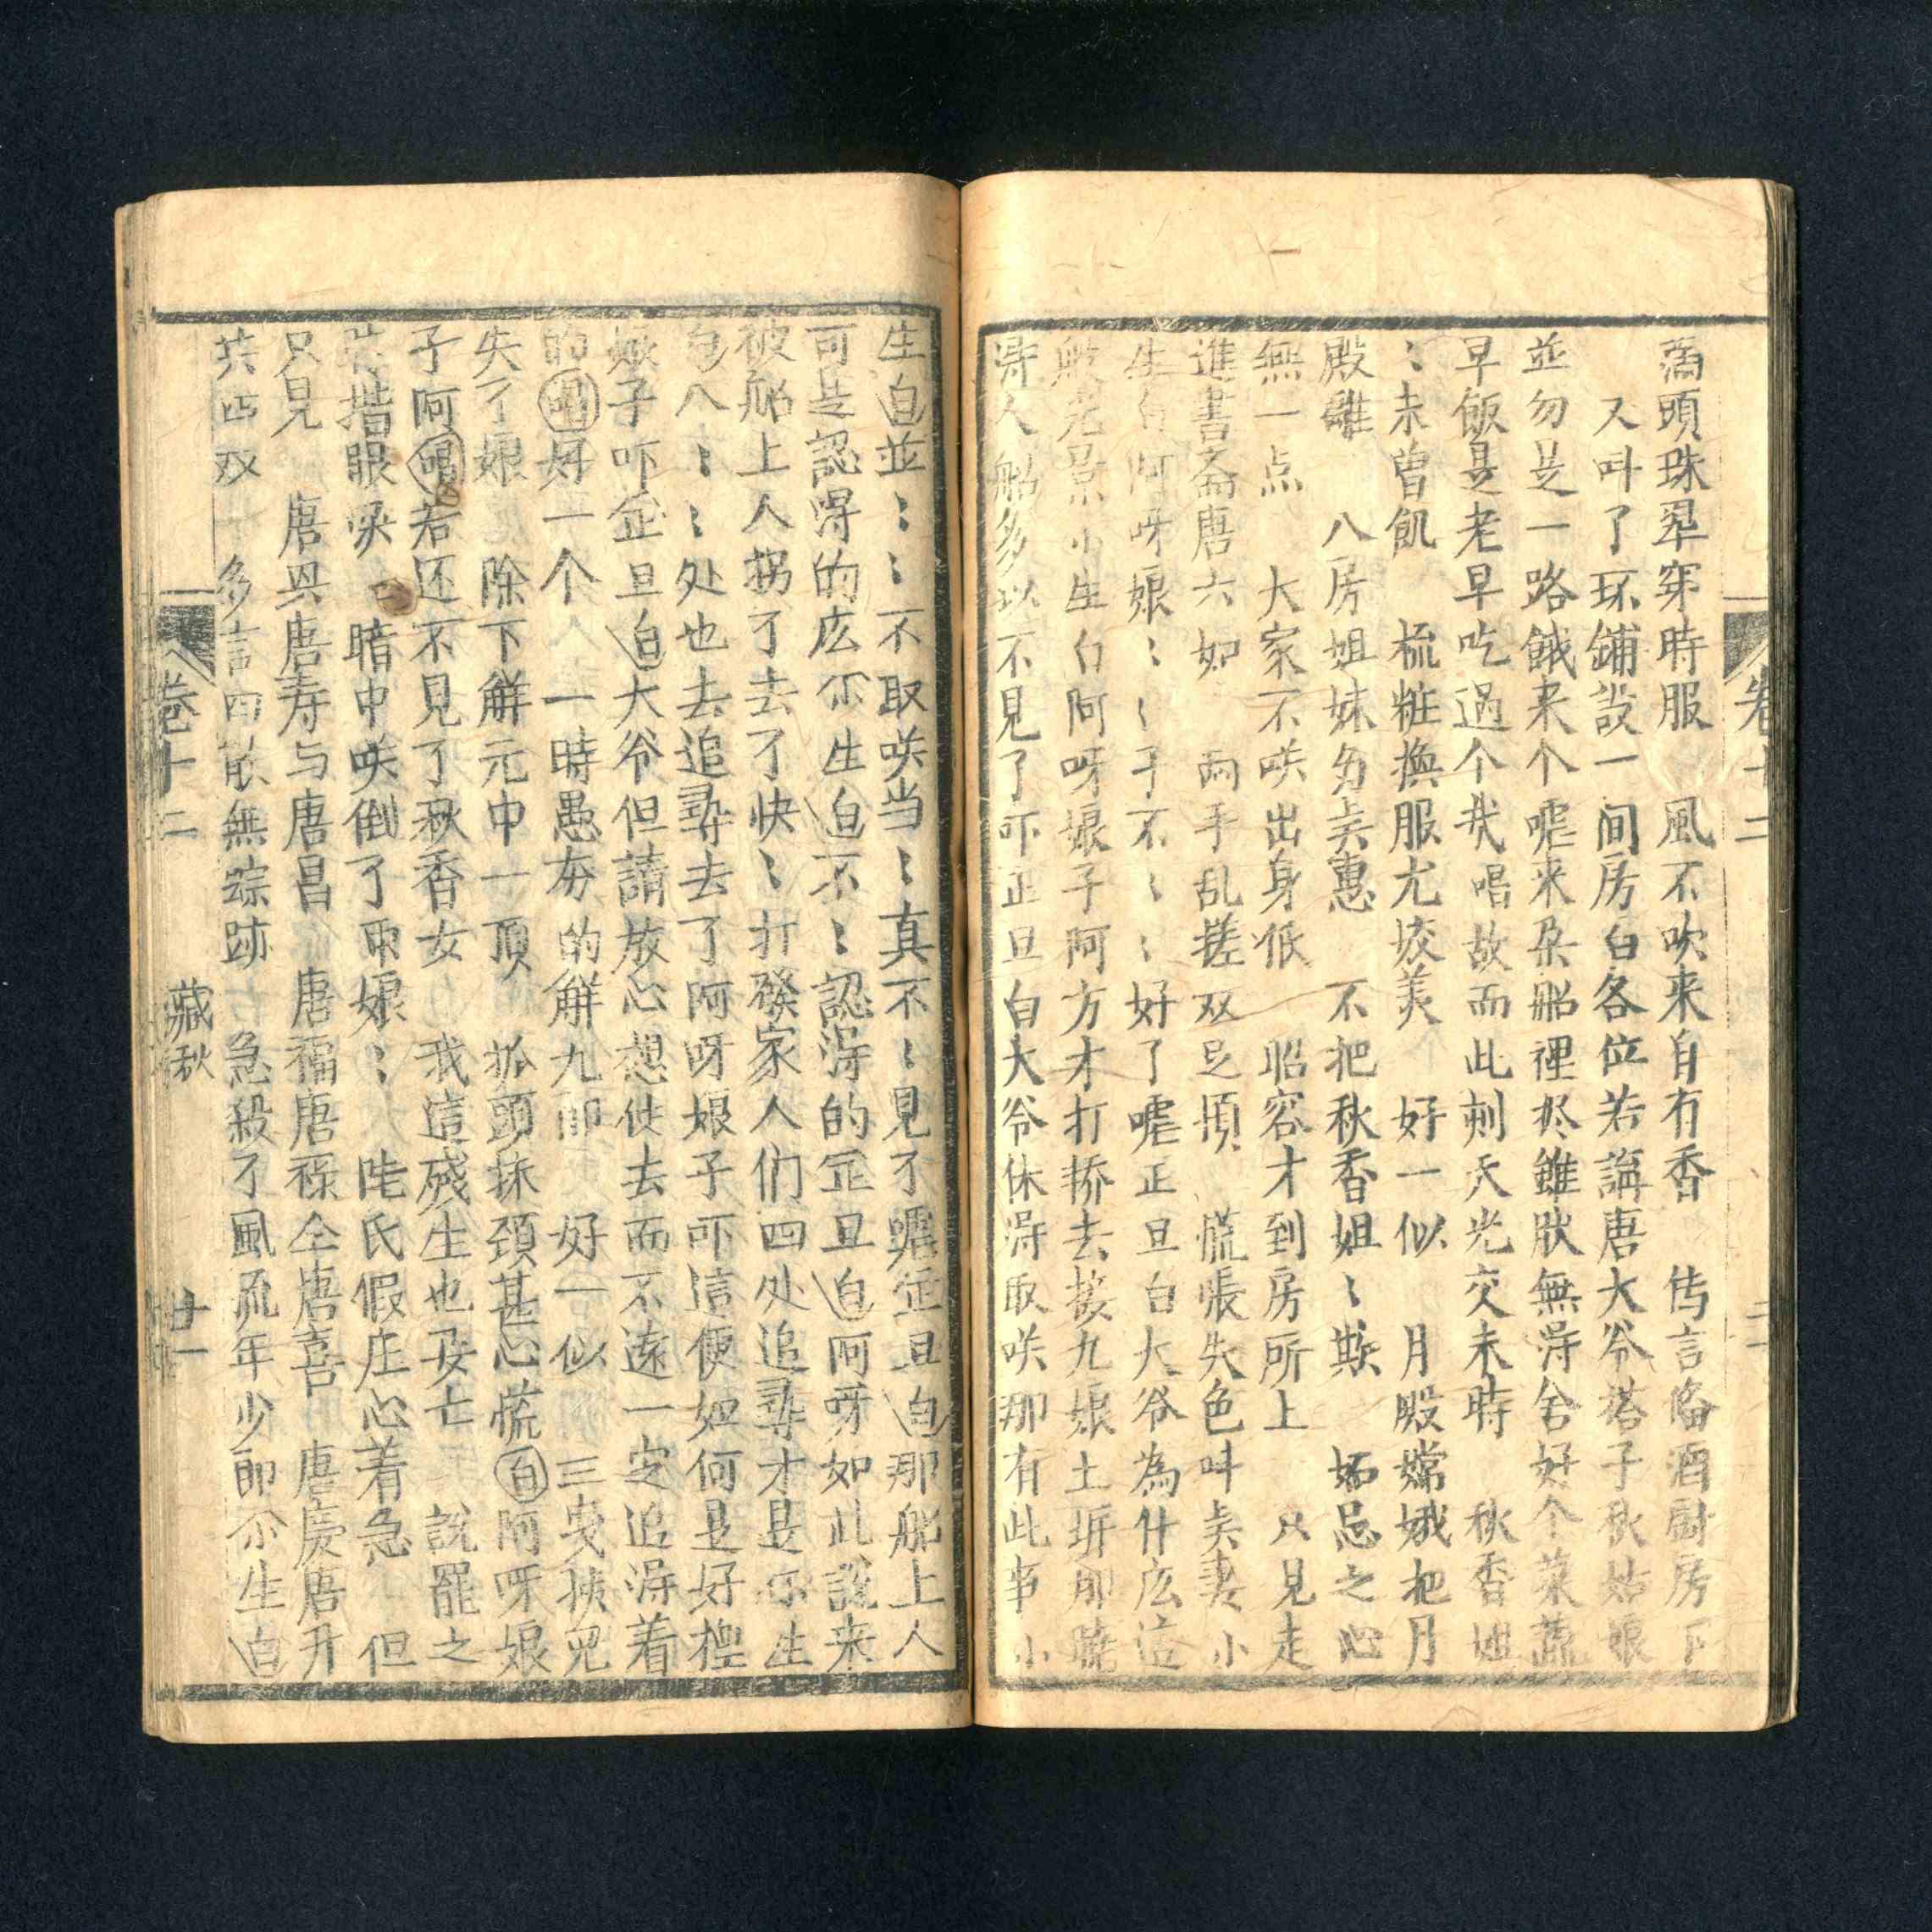 滿頭珠翠穿時服　風不吹来自有香　传言備酒厨房下
又呌了环鋪設一间房白各位若講唐大爷搭子秋姑娘
並勿是一路餓来个嚄来朶船裡於雖肽無淂舍好个菜蔬
早飯是老早吃過个哉唱故而此刻天光交未時　秋香姐
〻未曽飢　梳粧換服尤姣美　好一似　月殿嫦娥把月
殿離　八房姐妹多美惠　不把秋香姐〻欺　妬忌之心
無一点　大家不咲出身低　昭容才到房所上　只見走
進書斋唐六如　兩手乱搓双足頓　慌張失色呌美妻小
生白阿呀娘〻〻子不〻〻好了嚄正旦白大爷為什庅這
般光景小生白阿呀娘子阿方才打轎去接九娘土
淂人船多以不見了吓正旦白大爷休淂取咲那有此事小
生白並〻〻不取咲当〻真不〻見了嚄正旦白那船上人
可是認得的庅小生白不〻認淂的正旦白阿呀如此說来
被船上人拐了去了快〻打發家人们四处追尋才是小生
白八〻〻处也去追尋去了阿呀娘子吓這便如何是好
娘子吓正旦白大爷但請放心想他去而不遠一定追淂着
的唱好一个人　一時愚夯的觧九郎　好一似　三叟挨兜
失了娘　除下觧元巾一頂　抓頭抹頚甚心慌白阿呀娘
子阿唱若还不見了秋香女　我這殘生也要亡　說罷之
揩眼哭　暗中咲倒了兩娘〻　陸氏假庄心着急　但
只見　唐興唐寿与唐昌　唐福唐祿仝唐喜　唐慶唐升
共四双　多言四散無踪跡　急殺了風流年少郎小生白
卷十二　藏秋　廿一